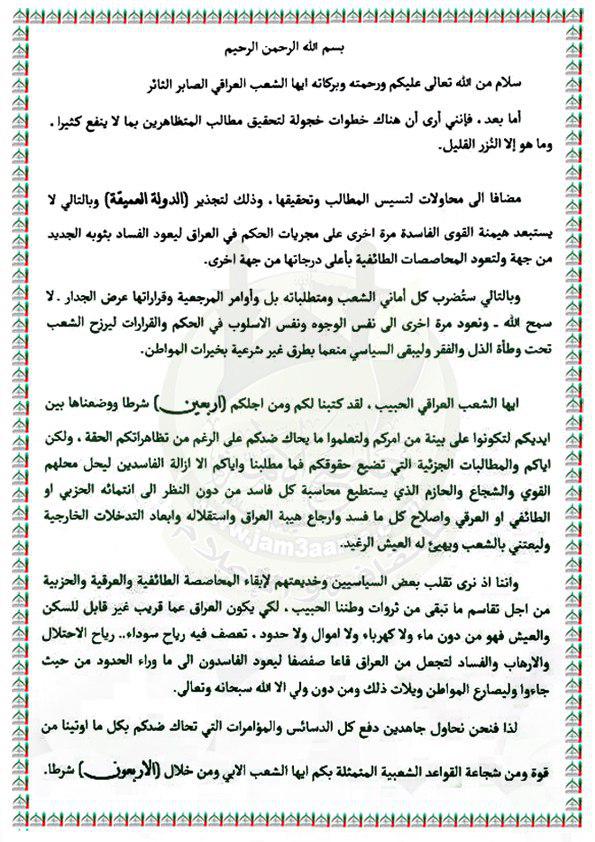 بسم الله الرحمن الرحيم
سلام من الله تعالى عليكم ورحمته وبركاته ايها الشعب العراقي الصابر الثائر
أما بعد ، فإنني أرى أن هناك خطوات خجولة لتحقيق مطالب المتظاهرين بما لا ينفع كثيرا ،
وما هو إلا النُزر القليل.
مضافا الى محاولات لتسيس المطالب وتحقيقها ، وذلك لتجذير (الدولة العميقة) وبالتالي لا
يستبعد هيمنة القوى الفاسدة مرة اخرى على مجريات الحكم في العراق ليعود الفساد بثوبه الجديد
من جهة ولتعود المحاصصات الطائفية بأعلى درجاتها من جهة اخرى.
وبالتالي ستُضرب كل أماني الشعب ومتطلباته بل وأوامر المرجعية وقراراتها عرض الجدار ـ لا
سمح الله ـ ونعود مرة اخرى الى نفس الوجوه ونفس الاسلوب في الحكم والقرارات ليرزح الشعب
تحت وطأة الذل والفقر وليبقى السياسي منعما بطرق غير شرعية بخيرات المواطن.
ايها الشعب العراقي الحبيب ، لقد كتبنا لكم ومن اجلكم (اربعين) شرطا ووضعناها بين
ايديكم لتكونوا على بينة من امركم ولتعلموا ما يحاك ضدكم على الرغم من تظاهراتكم الحقة ، ولكن
اياكم والمطالبات الجزئية التي تضيع حقوقكم فما مطلبنا واياكم الا ازالة الفاسدين ليحل محلهم
القوي والشجاع والحازم الذي يستطيع محاسبة كل فاسد من دون النظر الى انتمائه الحزبي او
الطائفي او العرقي واصلاح كل ما فسد وارجاع هيبة العراق واستقلاله وابعاد التدخلات الخارجية
وليعتني بالشعب ويهيئ له العيش الرغيد.
واننا اذ نرى تقلب بعض السياسيين وخديعتهم لإبقاء المحاصصة الطائفية والعرقية والحزبية
من اجل تقاسم ما تبقى من ثروات وطننا الحبيب ، لكي يكون العراق عما قريب غير قابل للسكن
والعيش فهو من دون ماء ولا كهرباء ولا اموال ولا حدود ، تعصف فيه رياح سوداء.. رياح الاحتلال
والارهاب والفساد لتجعل من العراق قاعا صفصفا ليعود الفاسدون الى ما وراء الحدود من حيث
جاءوا وليصارع المواطن ويلات ذلك ومن دون ولي الا الله سبحانه وتعالى.
لذا فنحن نحاول جاهدين دفع كل الدسائس والمؤامرات التي تحاك ضدكم بكل ما اوتينا من
قوة ومن شجاعة القواعد الشعبية المتمثلة بكم ايها الشعب الابي ومن خلال (الاربعون) شرطا.
www.jam3aa